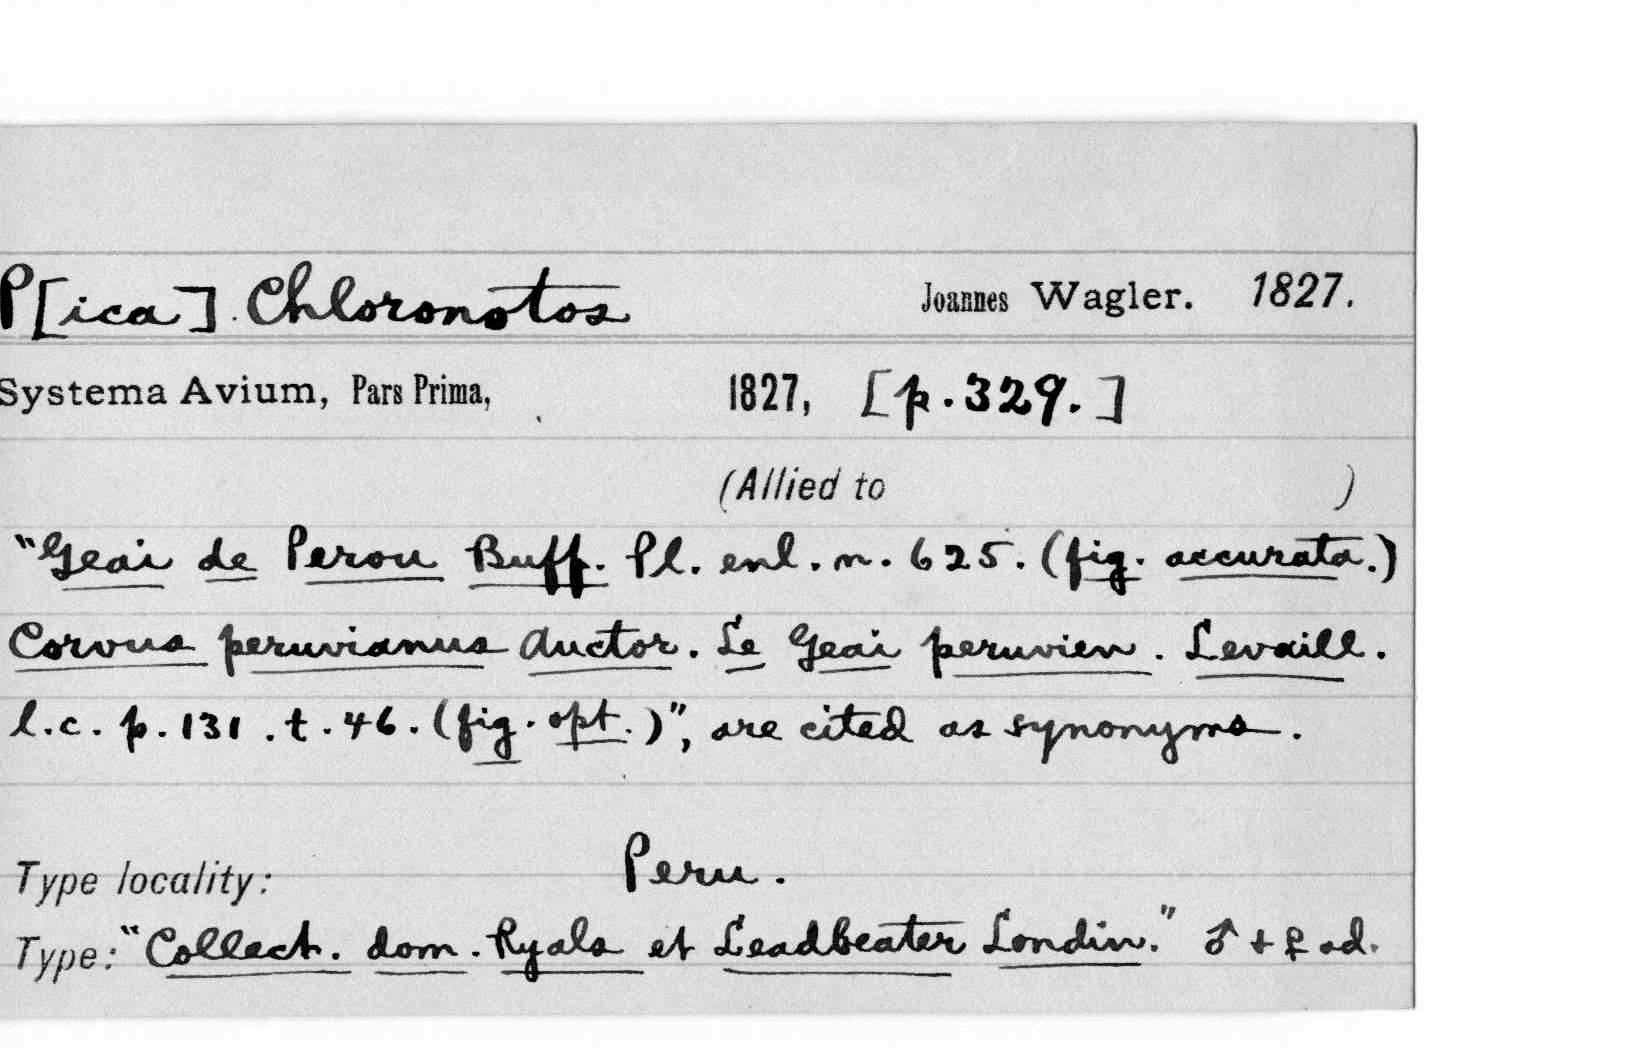 P[ica]. Chloronotos Joannes Wagler. 1827.
Systema Avium, Pars Prima, 1827, [p.329.]
(Allied to )
"Geai de Perou Buff. Pl. enl. n. 625. (fig. accurata.)
Corvus peruvianus Auctor. Le Geai peruvien. Levaill.
l.c. p. 131. t. 46. (fig. opt.)", are cited as synonyms.
Type locality: Peru.
Type: "Collect. dom. Ryals et Leadbeater Londin." ♂ + ♀ ad.